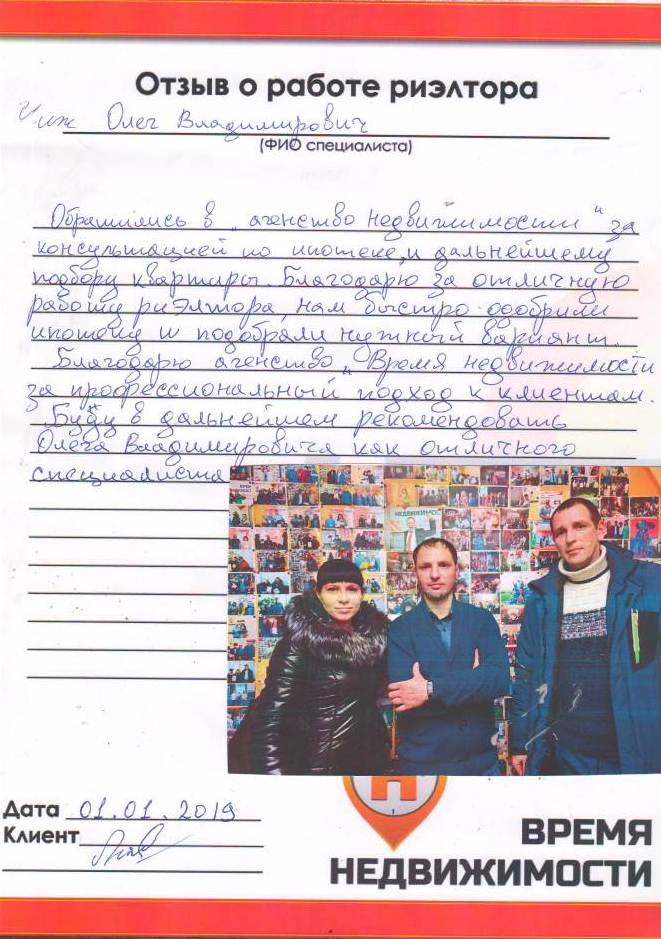 Отзыв о работе риэлтора
Чиж Олег Владимирович
(ФИО специалиста)
Обратились в „агенство недвижимости“ за
консультацией по ипотеке, и дальнейшему
подбору квартиры. Благодарю за отличную
работу риэлтора, нам быстро одобрили
ипотеку и подобрали нужный вариант.
Благодарю агенство „Время недвижимости
за профессиональный подход к клиентам.
Буду в дальнейшем рекомендовать
Олега Владимировича как отличного
специалиста
НЕДВИЖИМОС
Дата 01.01.2019
Клиент
ВРЕМЯ
НЕДВИЖИМОСТИ